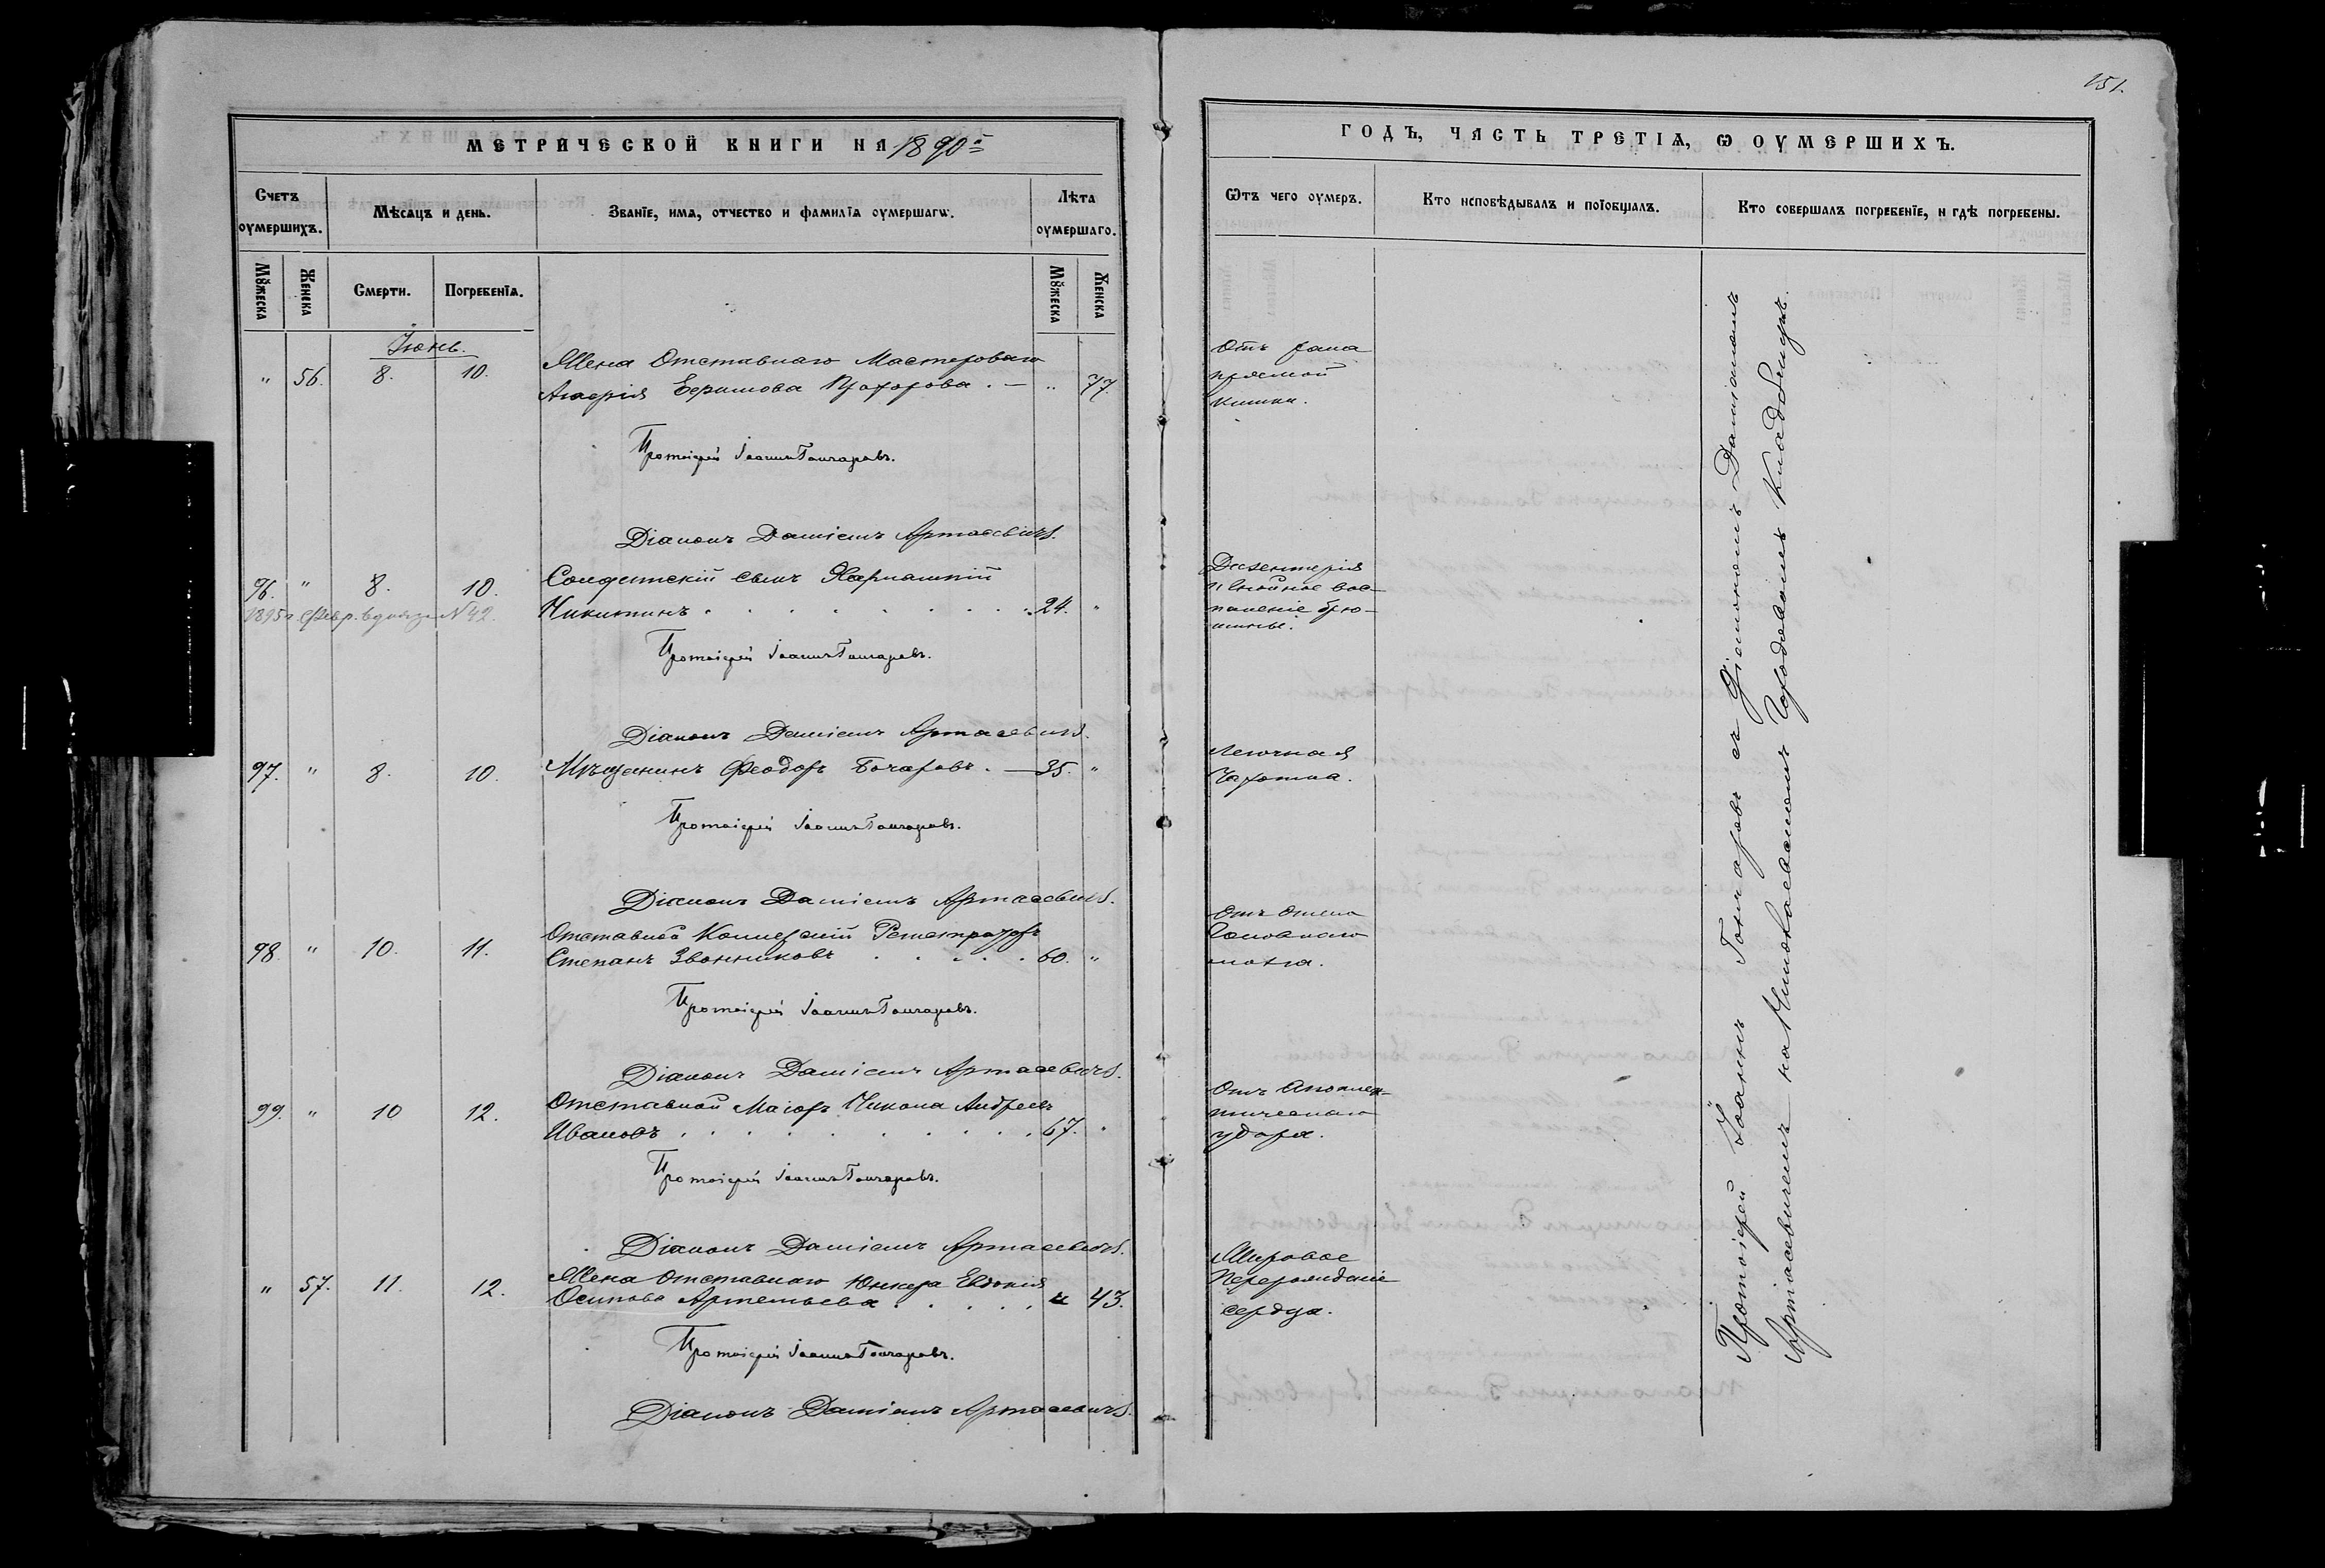 151.
МЕТРИЧЕСКОЙ КНИГИ НА 1890й
ГОДЪ, ЧАСТЬ ТРЕТІѦ, Ѡ ОУМЕРШИХЪ.
Счетъ оумершихъ.
Мѣсѧцъ и день.
Званїе, имѧ, отчество и фамилїѧ оумершагѡ.
Лѣта оумершаго.
Ѿтъ чего оумеръ.
Кто исповѣдывалъ и поїобщалъ.
Кто совершалъ погребенїе, и гдѣ погребены.
Мꙋжеска
Женска
Смерти.
Погребенїѧ.
Мꙋжеска
Женска
Іюнь.
Жена Отставнаго Мастероваго
" 56. 8. 10. Агафія Ефимова Прохорова. — " 77.
Отъ рака
прямой
кишки.
Протоіерей Іоаннъ Гончаровъ.
Діаконъ Даміанъ Артасевичъ.
Солдатскій сынъ Харлампій
96. " 8. 10. Никитинъ . . . . . . 24. "
1895 г. Февр. выдана №42.
Дизентерія
и гнойное вос-
паленіе брю-
шины.
Протоіерей Іоаннъ Гончаровъ.
Діаконъ Даміанъ Артасевичъ.
97. " 8. 10. Мѣщанинъ Феодоръ Бочаровъ. — 35. "
Легочная
Чахотка.
Протоіерей Іоаннъ Гончаровъ.
Діаконъ Даміанъ Артасевичъ.
Отставной Коллежскій Регистраторъ
98. " 10. 11. Степанъ Звонниковъ . . . . . 60. "
Отъ отека
Головнаго
мозга.
Протоіерей Іоаннъ Гончаровъ.
Діаконъ Даміанъ Артасевичъ.
Отставной Маіоръ Никола Андреевъ
99. " 10 12. Ивановъ . . . . . . . . 67. "
Отъ Апоплек-
тическаго
удара.
Протоіерей Іоаннъ Гончаровъ.
Діаконъ Даміанъ Артасевичъ.
Жена Отставнаго Юнкера Евдокія
" 57. 11. 12. Осипова Артемьева . . . . . " 43.
Жировое
Перерожденіе
сердца.
Протоіерей Іоаннъ Гончаровъ.
Діаконъ Даміанъ Артасевичъ.
Протоіерей Іоаннъ Гончаровъ съ Діакономъ Даміаномъ
Артасевичемъ на Николаевскомъ Городовомъ Кладбищѣ.